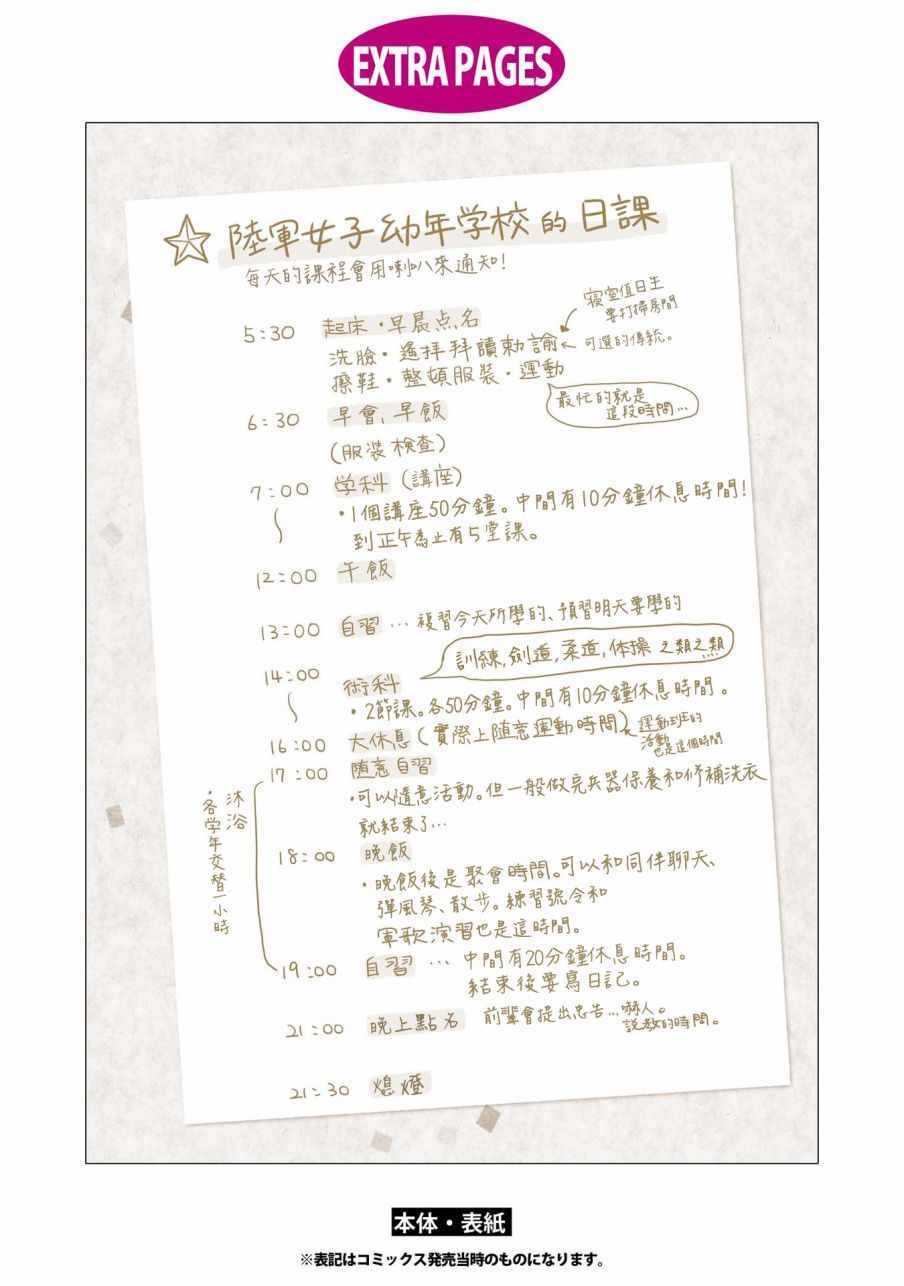 EXTRA PAGES
☆ 陸軍女子幼年学校的日課
每天的課程會用喇叭來通知!
5:30 起床・早晨点名
寝室值日生
要打掃房間
洗臉・遙拝拜讀勅諭
可選的傳統。
擦鞋・整頓服装・運動
最忙的就是
這段時間…
6:30 早會、早飯
(服装検查)
7:00 学科(講座)
・1個講座50分鐘。中間有10分鐘休息時間!
到正午為止有5堂課。
12:00 午飯
13:00 自習…複習今天所學的、預習明天要學的
14:00 術科
訓練,劍道,柔道,体操 之類之類
・2節課。各50分鐘。中間有10分鐘休息時間。
16:00 大休息(實際上随意運動時間)
運動班的
活動
也是這個時間
17:00 随意自習
・可以隨意活動。但一般做完兵器保養和修補洗衣
就結束了…
沐浴
・各学年交替一小時
18:00 晚飯
・晚飯後是聚會時間。可以和同伴聊天、
彈風琴、散步。練習號令和
軍歌演習也是這時間。
19:00 自習 … 中間有20分鐘休息時間。
結束後要寫日記。
21:00 晚上點名 前輩會提出忠告…嚇人。
説教的時間。
21:30 熄燈
本体・表紙
※表記はコミックス発売当時のものになります。